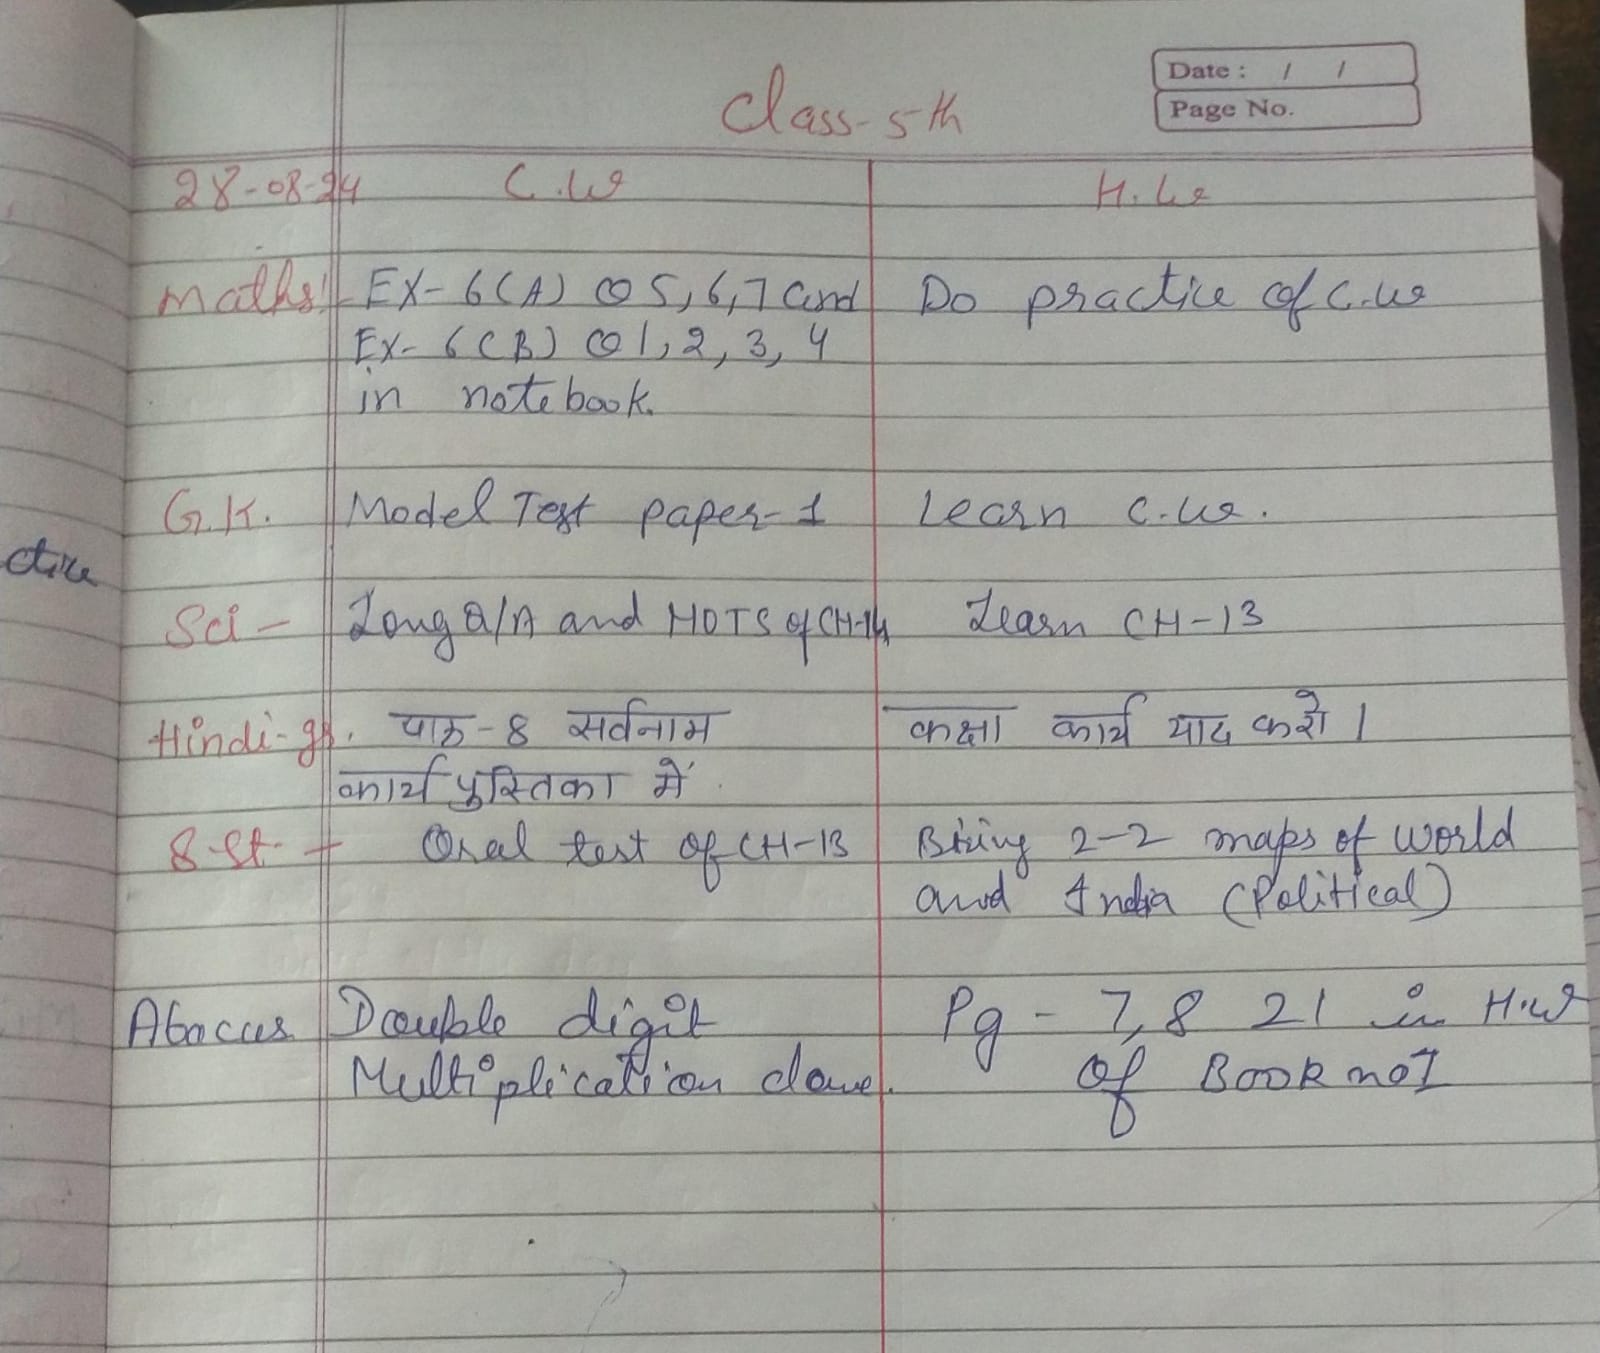 Date : / /
Page No.
Class-5th
28-08-24 C.W H.W
Maths:- EX-6(A) Q5,6,7 and Do practice of C.W
EX-6(B) Q1,2,3,4
in notebook.
G.K. Model Test paper-1 Learn C.W.
ctice
Sci- Long Q/A and HOTS of CH-14 Learn CH-13
Hindi-gr. पाठ-8 सर्वनाम कक्षा कार्य याद करो।
कार्य पुस्तिका में
S.St.- Oral test of CH-13 Bring 2-2 maps of World
and India (Political)
Abacus Double digit Pg-7,8 21 in H.W
Multiplication done. of Book no 1